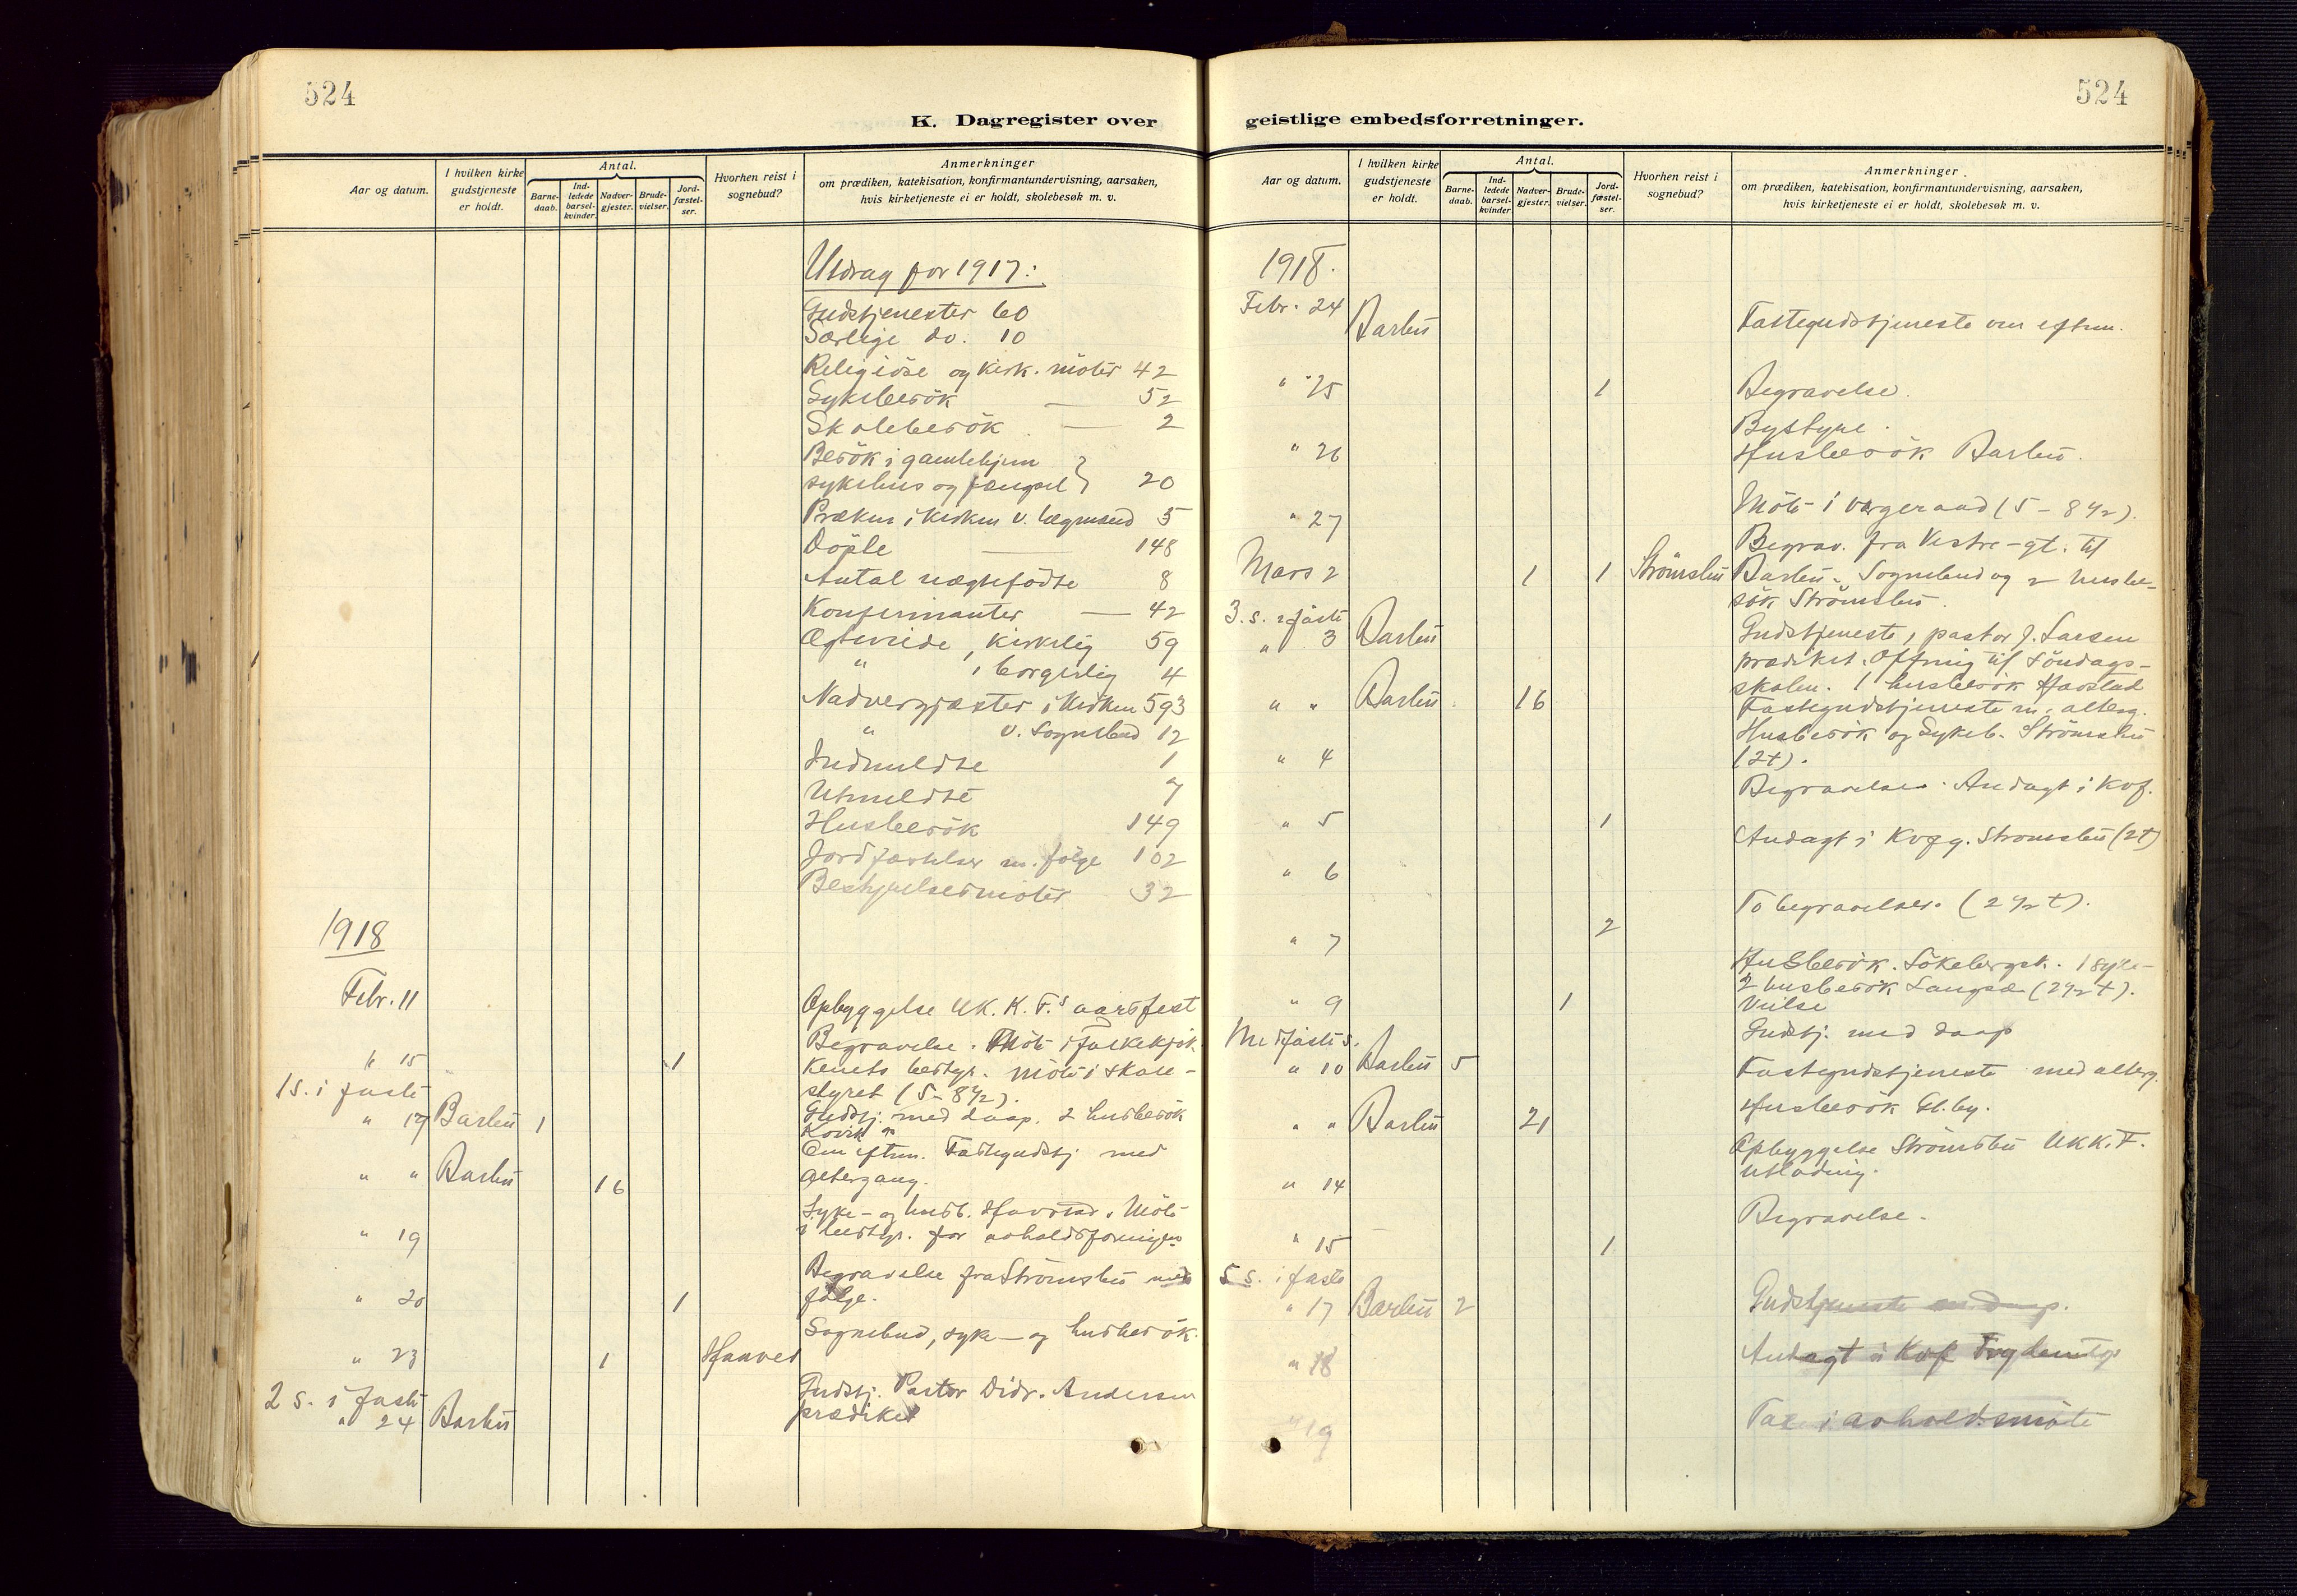 524
K. Dagregister over
Aar og datum.
I hvilken kirke gudstjeneste er holdt.
Antal.
Barne-daab.
Ind-ledede barsel-kvinder.
Nadver-gjester.
Brude-vielser.
Jord-fæstel-ser.
Hvorhen reist i sognebud?
Anmerkninger
om prædiken, katekisation, konfirmantundervisning, aarsaken,
hvis kirketjeneste ei er holdt, skolebesøk m. v.
Utdrag for 1917:
Gudstjenester 60
Særlige do. 10
Religiöse og kirk. möter 42
Sykebesök — 52
Skolebesök — 2
Besök i gamlehjem
sykehus og fængsel } 20
Præken i kirken v. lægmænd 5
Döpte — 148
Antal uægtefödte 8
Konfirmanter — 42
Ægteviede, kirkelig 59
" , borgerlig 4
Nadvergjæster i kirken 593
" v. Sognebud 12
Indmeldte 1
Utmeldte 7
Husbesök 149
Jordfæstelser m. följe 102
Bestyrelsesmöter 32
1918
Febr. 11 Opbyggelse U.K.K.F.s aarsfest
" 15 1 Begravelse. Möte i folkekjök-
kenets bestyr. Möte i skole-
styret (5-8½).
1 s. i faste
" 17 Barbu 1 Gudstj. med daap. 2 husbesök
" " Barbu 16 Em eftm. Fastegudstj. med
altergang.
" 19 Syke- og husb. Havstad. Möte
i bestyr. for avholdsforeningen
" 20 1 Begravelse fra Strömsbu med
följe.
" 23 1 Sognebud, syke- og husbesök.
2 s. i faste
" 24 Barbu Gudstj. Pastor Didr. Andersen
prædiket
524
geistlige embedsforretninger.
Aar og datum.
I hvilken kirke gudstjeneste er holdt.
Antal.
Barne-daab.
Ind-ledede barsel-kvinder.
Nadver-gjester.
Brude-vielser.
Jord-fæstel-ser.
Hvorhen reist i sognebud?
Anmerkninger.
om prædiken, katekisation, konfirmantundervisning, aarsaken,
hvis kirketjeneste ei er holdt, skolebesøk m. v.
1918.
Febr. 24 Barbu Fastegudstjeneste om eftm.
" 25 1 Begravelse.
Bystyre.
" 26 Husbesök Barbu.
" 27 Möte i vergeraad (5-8½).
Begrav. fra Vestre-gt. til
Mars 2 1 1 Strömsbu Barbu. Sognebud og 2 husbe-
sök Strömsbu.
3. s. i faste
" 3 Barbu Gudstjeneste, pastor J. Larsen
prædiket. Offring til Söndags-
skolen. 1 husbesök Havstad
" " Barbu 16 Fastegudstjeneste m. alterg.
" 4 Husbesök og Sykeb. Strömsbu
(2t).
" 5 1 Begravelse. Andagt i Kvf.
" 6 Andagt i Kvfg. Stromsbu (2t)
" 7 2 To begravelser. (2½ t).
" 9 1 Husbesök. 1 syke-
2 husbesök Langsæ (2½ t).
Vielse
Midfaste s.
" 10 Barbu 5 Gudstj. med daap
" " Barbu 21 Fastegudstjeneste med alterg.
Husbesök Gl.by.
" 14 Opbyggelse Strömsbu U.K.K.F.
utlodning.
" 15 1 Begravelse.
5 s. i faste
" 17 Barbu 2 Gudstjeneste m. daap.
" 18 Andagt i Kvf
" 19 Tale i avholdsmöte